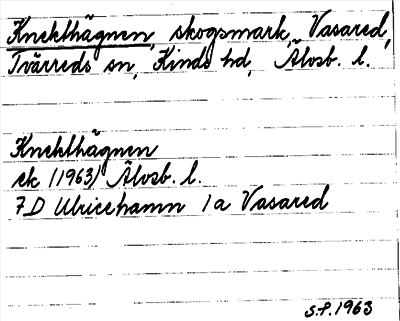 Knekthägnen, skogsmark, Vasared,
Tvärreds sn, Kinds hd, Älvsb. l.
Knekthägnen
ek (1963) Älvsb. l.
7D Ulricehamn 1a Vasared
S.F. 1963